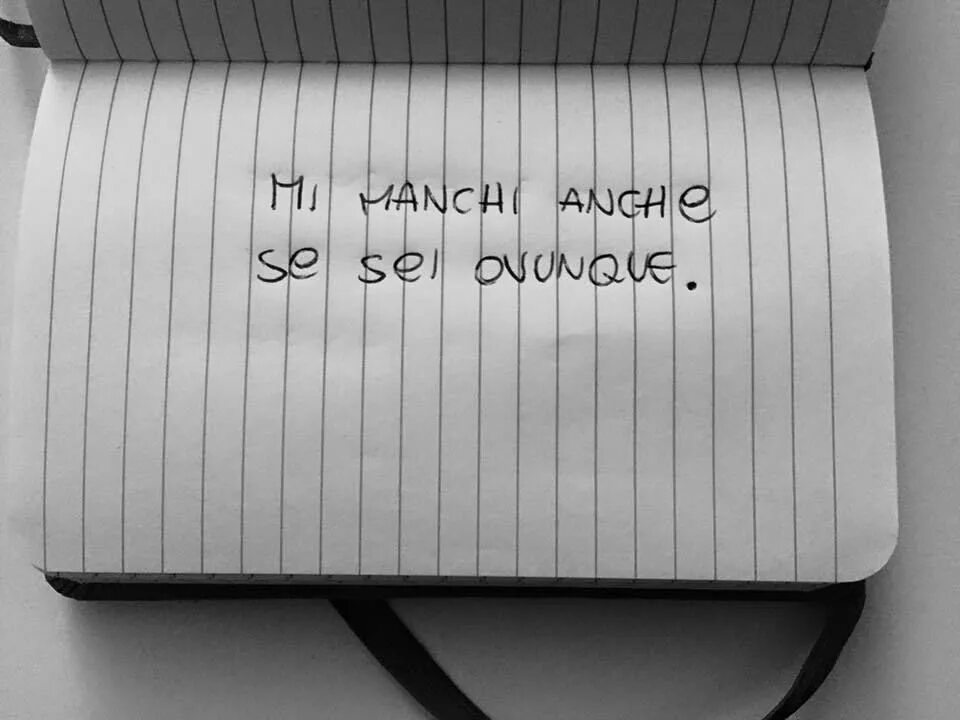 MI MANCHI ANCHE
SE SEI OVUNQUE.